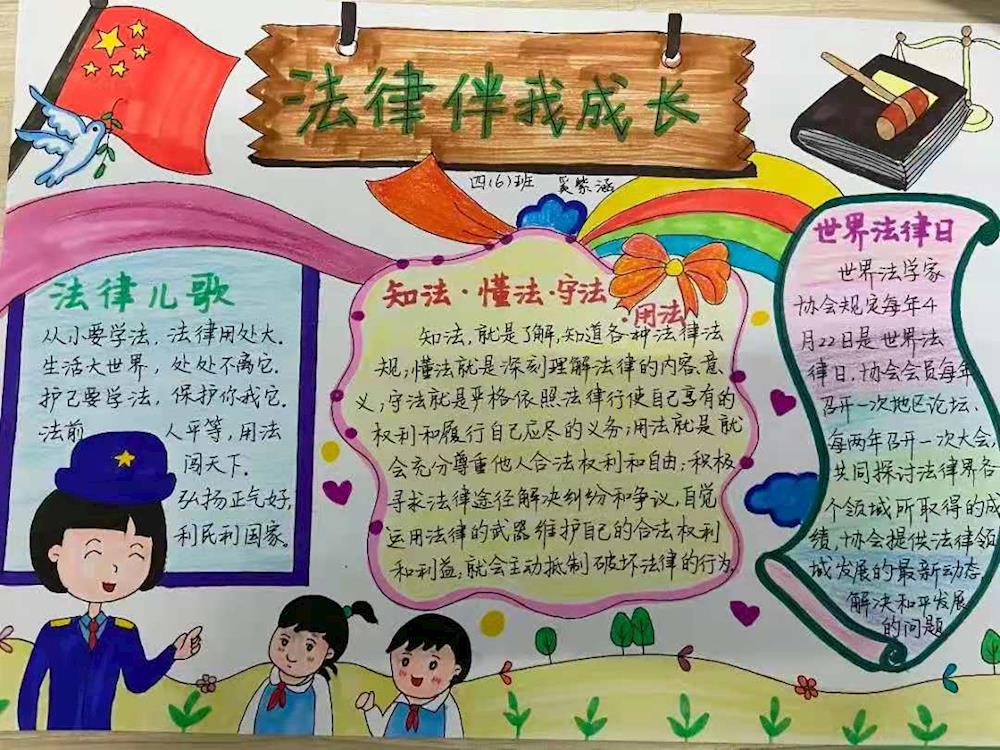 法律伴我成长
四(6)班 吴紫涵
法律儿歌
从小要学法，法律用处大.
生活大世界，处处不离它.
护己要学法，保护你我它.
法前 人平等，用法
闯天下.
弘扬正气好，
利民利国家。
知法·懂法·守法
·用法
知法，就是了解，知道各种法律法
规；懂法就是深刻理解法律的内容.意
义；守法就是严格依照法律行使自己享有的
权利和履行自己应尽的义务；用法就是就
会充分尊重他人合法权利和自由；积极
寻求法律途径解决纠纷和争议，自觉
运用法律的武器维护自己的合法权利
和利益；就会主动抵制破坏法律的行为.
世界法律日
世界法学家
协会规定每年4
月22日是世界法
律日.协会会员每年
召开一次地区论坛.
每两年召开一次大会，
共同探讨法律界各
个领域所取得的成
绩，协会提供法律领
域发展的最新动态.
解决和平发展
的问题